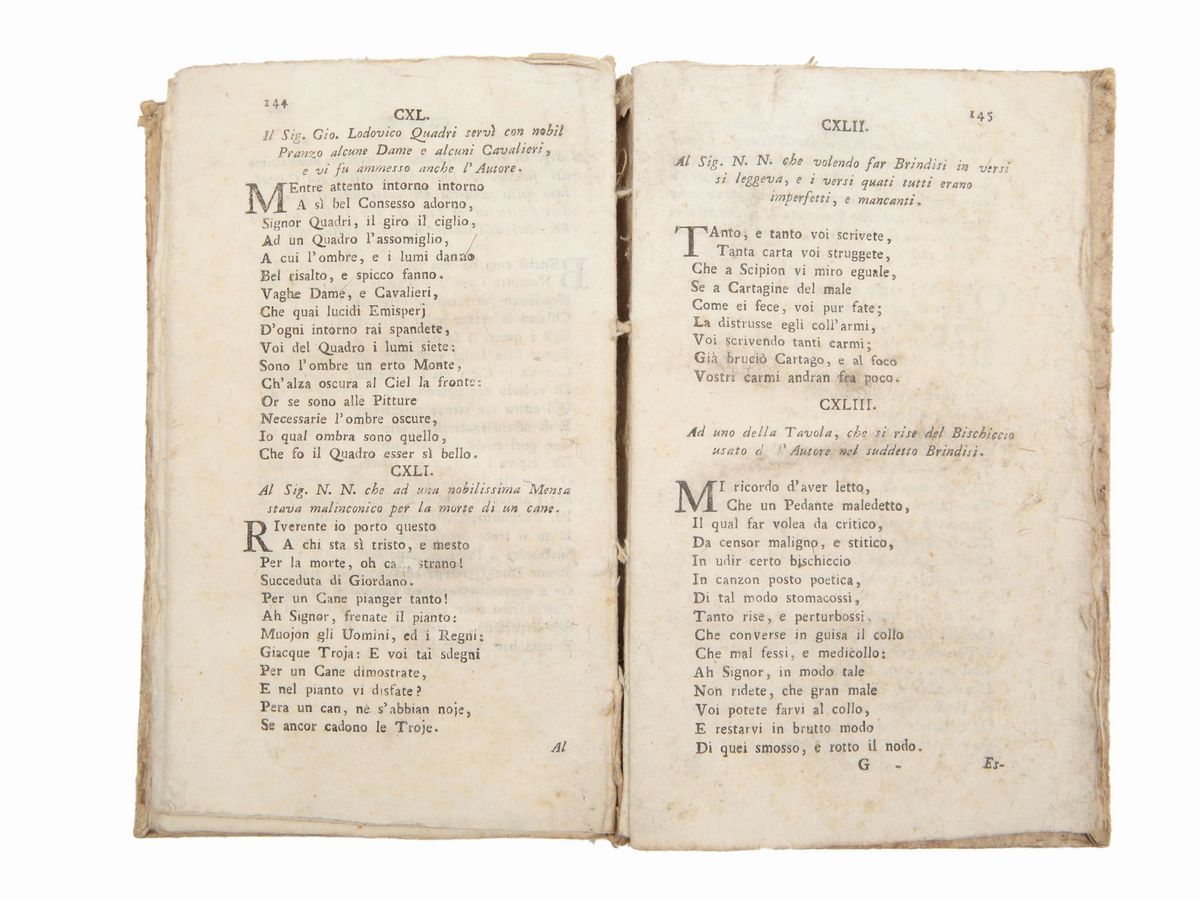 144
CXL.
Il Sig. Gio. Lodovico Quadri servì con nobil
Pranzo alcune Dame e alcuni Cavalieri,
e vi fu ammesso anche l'Autore.
MEntre attento intorno intorno
A sì bel Consesso adorno,
Signor Quadri, il giro il ciglio,
Ad un Quadro l'assomiglio,
A cui l'ombre, e i lumi danno
Bel risalto, e spicco fanno.
Vaghe Dame, e Cavalieri,
Che quai lucidi Emisperj
D'ogni intorno rai spandete,
Voi del Quadro i lumi siete:
Sono l'ombre un erto Monte,
Ch'alza oscura al Ciel la fronte:
Or se sono alle Pitture
Necessarie l'ombre oscure,
Io qual ombra sono quello,
Che fo il Quadro esser sì bello.
CXLI.
Al Sig. N. N. che ad una nobilissima Mensa
stava malinconico per la morte di un cane.
RIverente io porto questo
A chi sta sì tristo, e mesto
Per la morte, oh ca... strano!
Succeduta di Giordano.
Per un Cane pianger tanto!
Ah Signor, frenate il pianto:
Muojon gli Uomini, ed i Regni:
Giacque Troja: E voi tai sdegni
Per un Cane dimostrate,
E nel pianto vi disfate?
Pera un can, nè s'abbian noje,
Se ancor cadono le Troje.
Al
145
CXLII.
Al Sig. N. N. che volendo far Brindisi in versi
si leggeva, e i versi quati tutti erano
imperfetti, e mancanti.
TAnto, e tanto voi scrivete,
Tanta carta voi struggete,
Che a Scipion vi miro eguale,
Se a Cartagine del male
Come ei fece, voi pur fate;
La distrusse egli coll'armi,
Voi scrivendo tanti carmi;
Già bruciò Cartago, e al foco
Vostri carmi andran fra poco.
CXLIII.
Ad uno della Tavola, che si rise del Bischiccio
usato d l'Autore nel suddetto Brindisi.
MI ricordo d'aver letto,
Che un Pedante maledetto,
Il qual far volea da critico,
Da censor maligno, e stitico,
In udir certo bischiccio
In canzon posto poetica,
Di tal modo stomacossi,
Tanto rise, e perturbossi,
Che converse in guisa il collo
Che mal fessi, e medicollo:
Ah Signor, in modo tale
Non ridete, che gran male
Voi potete farvi al collo,
E restarvi in brutto modo
Di quei smosso, e rotto il nodo.
G -
Es-